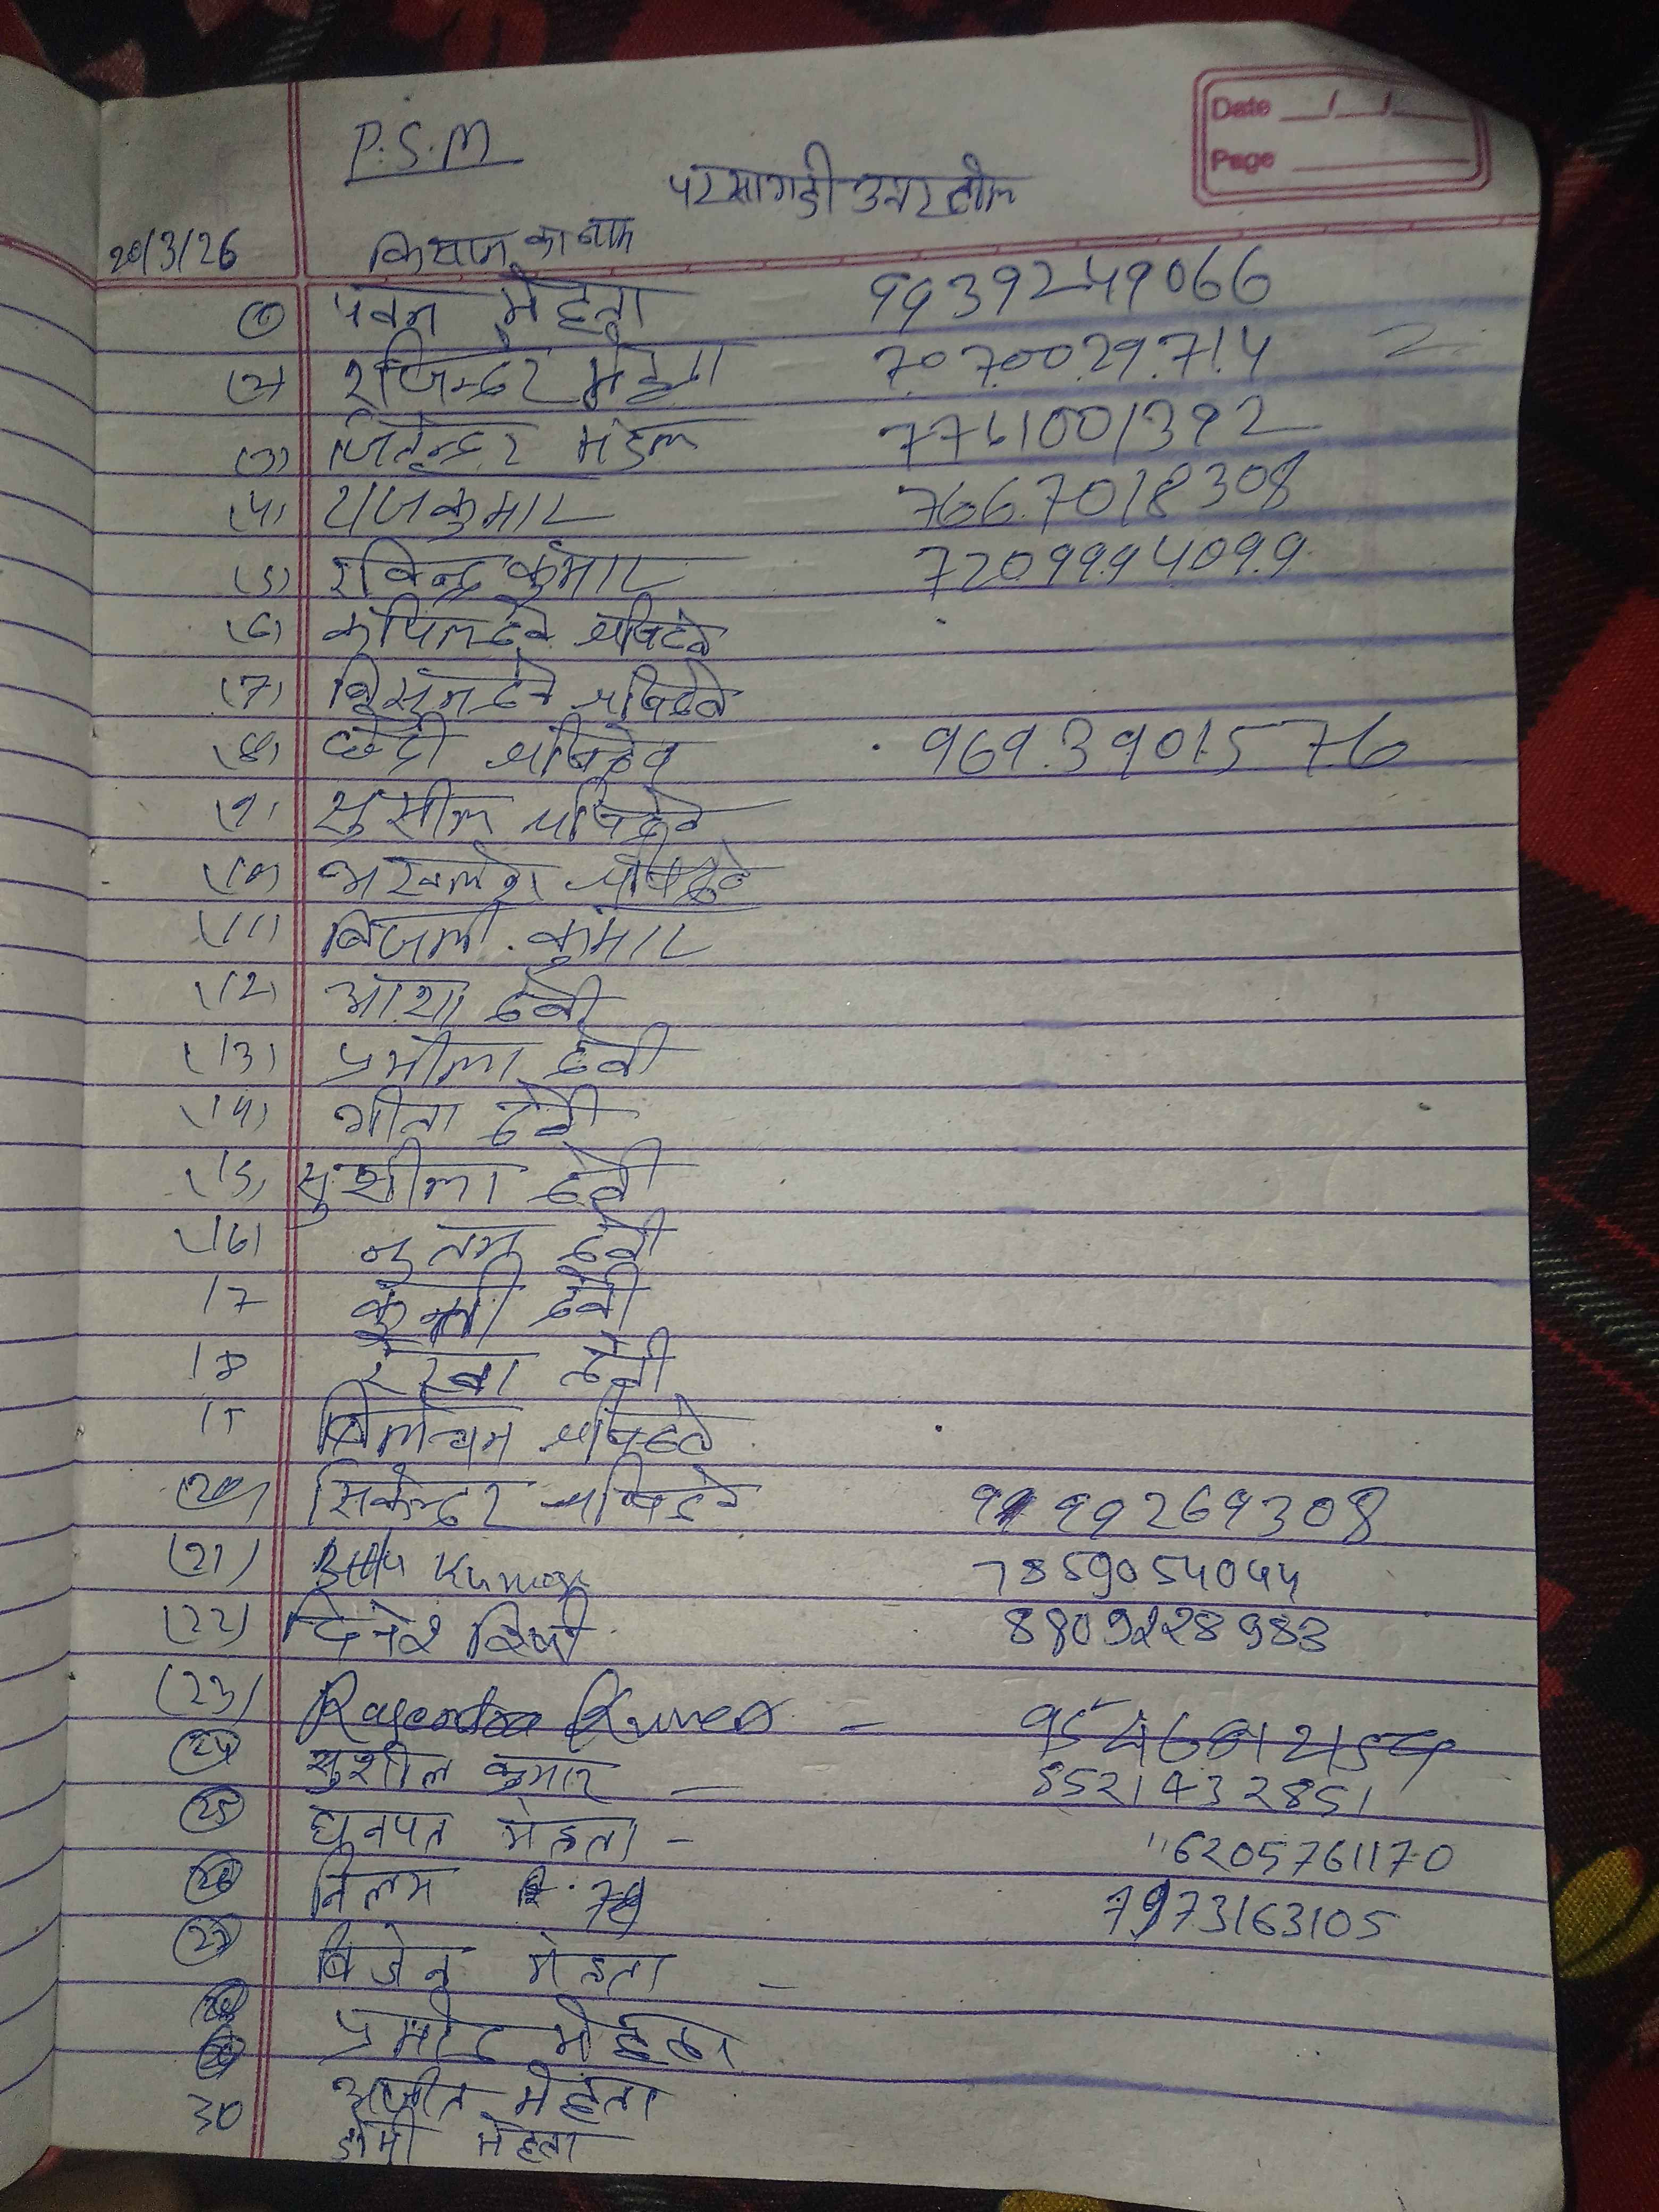 P.S.M
Date __/__/__
Page
परसागढी उत्तर टोल
20/3/26 किसान का नाम
(1) पवन मेहता 9939249066
(2) राजेन्दर मेहता 7070029714
(3) जितेन्दर मंडल 7761001392
(4) राजकुमार 7667018308
(5) रविन्द्र कुमार 7209994099
(6) कपिलदेव ऋषिदेव
(7) बिसुनदेव ऋषिदेव
(8) छेदी ऋषिदेव 9693901576
(9) सुसील ऋषिदेव
(10) अखलेश ऋषिदेव
(11) बिजली कुमार
(12) आशा देवी
(13) प्रमीला देवी
(14) गीता देवी
(15) सुशीला देवी
(16) नुतन देवी
17 कुन्ती देवी
18 रेखा देवी
19 ऋषिदेव
(20) सिकेन्दर ऋषिदेव 9199269308
(21) Kumar 7859054044
(22) दिनेश रिषी 8809228983
(23) Rajendra Kumar -
(24) सुशील कुमार - 8521432851
(25) धनपत मेहता - 6205761170
(26) निलम 7973163105
(27) मेहता -
(28) प्रमोद मेहता
अजीत मेहता
30 डोमी मेहता